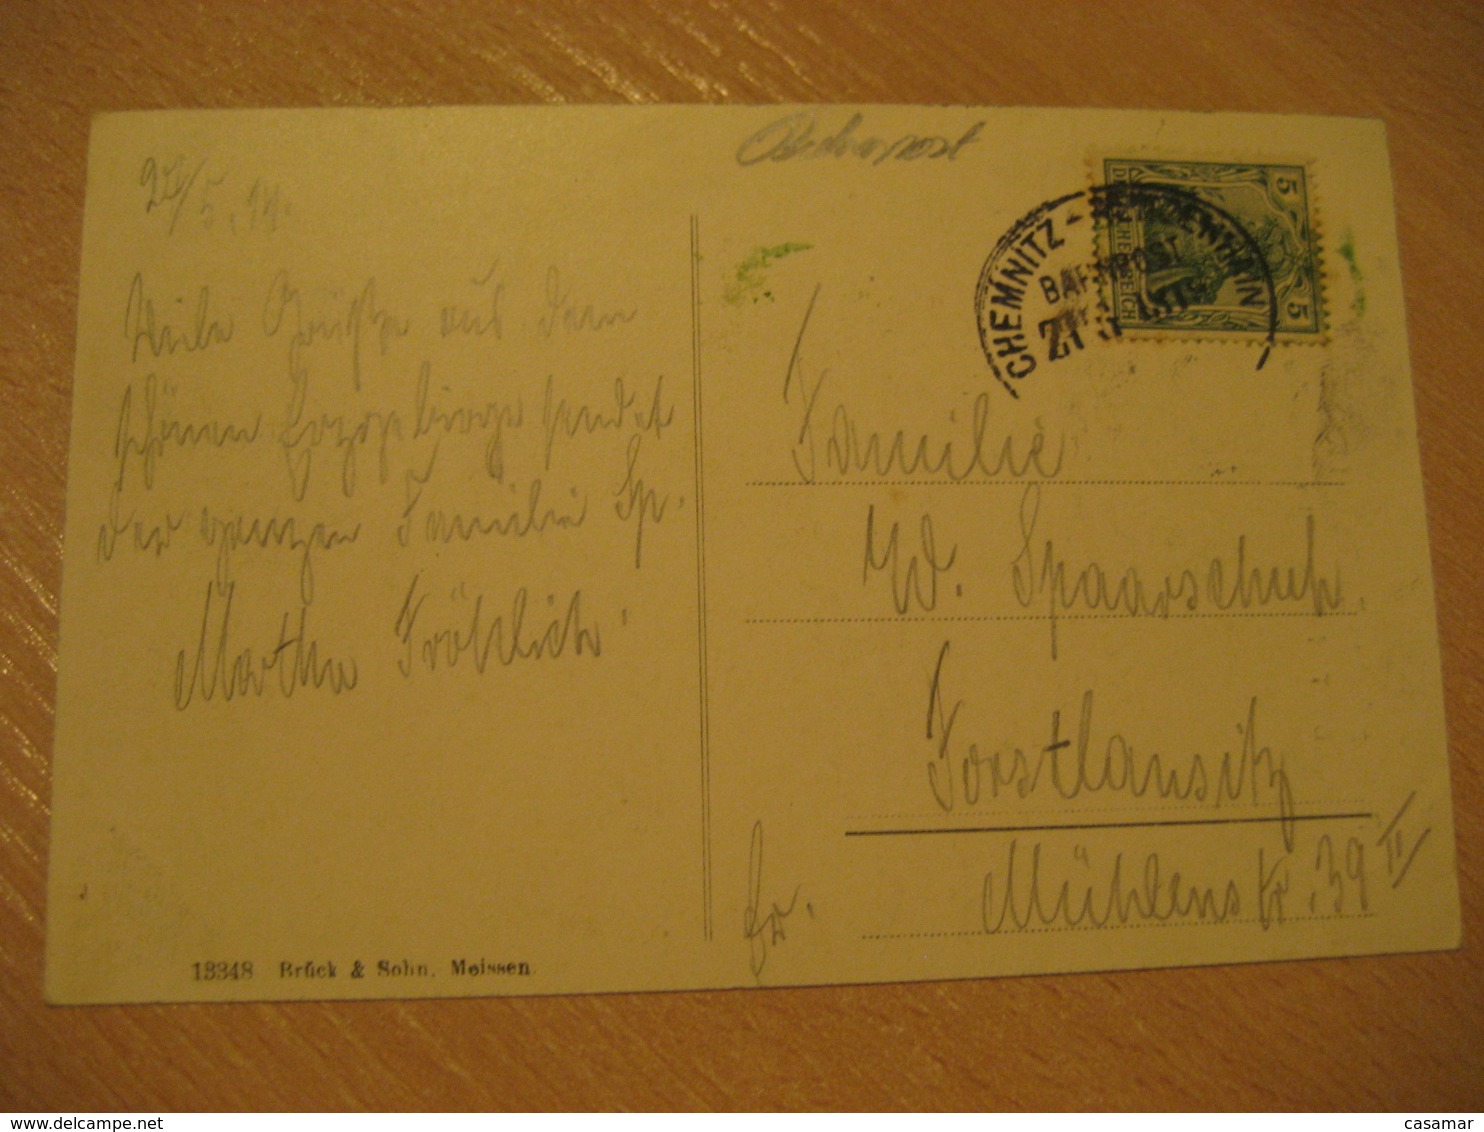 Bahnpost
5.14.
CHEMNITZ -
BAHNPOST
5
5
DEUTSCHES REICH
Viele Grüße aus dem
schönen Erzgebirge sendet
der ganzen Familie Sp.
Martha Fröhlich.
Familie
W. Spaarschuh.
Forstlausitz
Mühlenstr. 39 II
13348 Brück & Sohn, Meissen.
www.delcampe.net
casamar